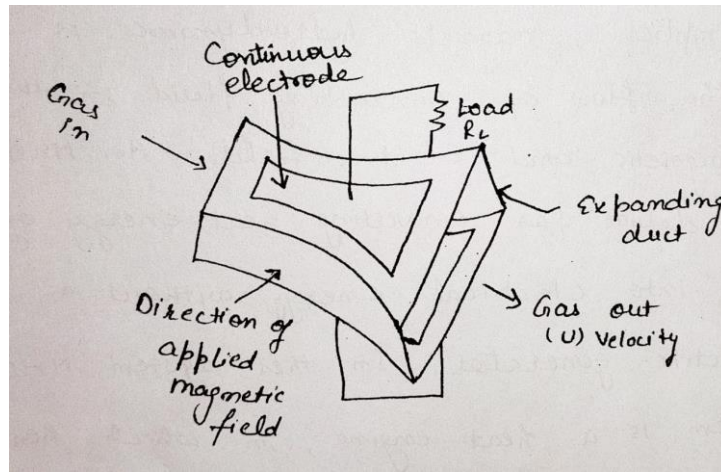 Continuous
electrode
Gas
in
Load
RL
Expanding
duct
Gas out
(U) Velocity
Direction of
applied
magnetic
field